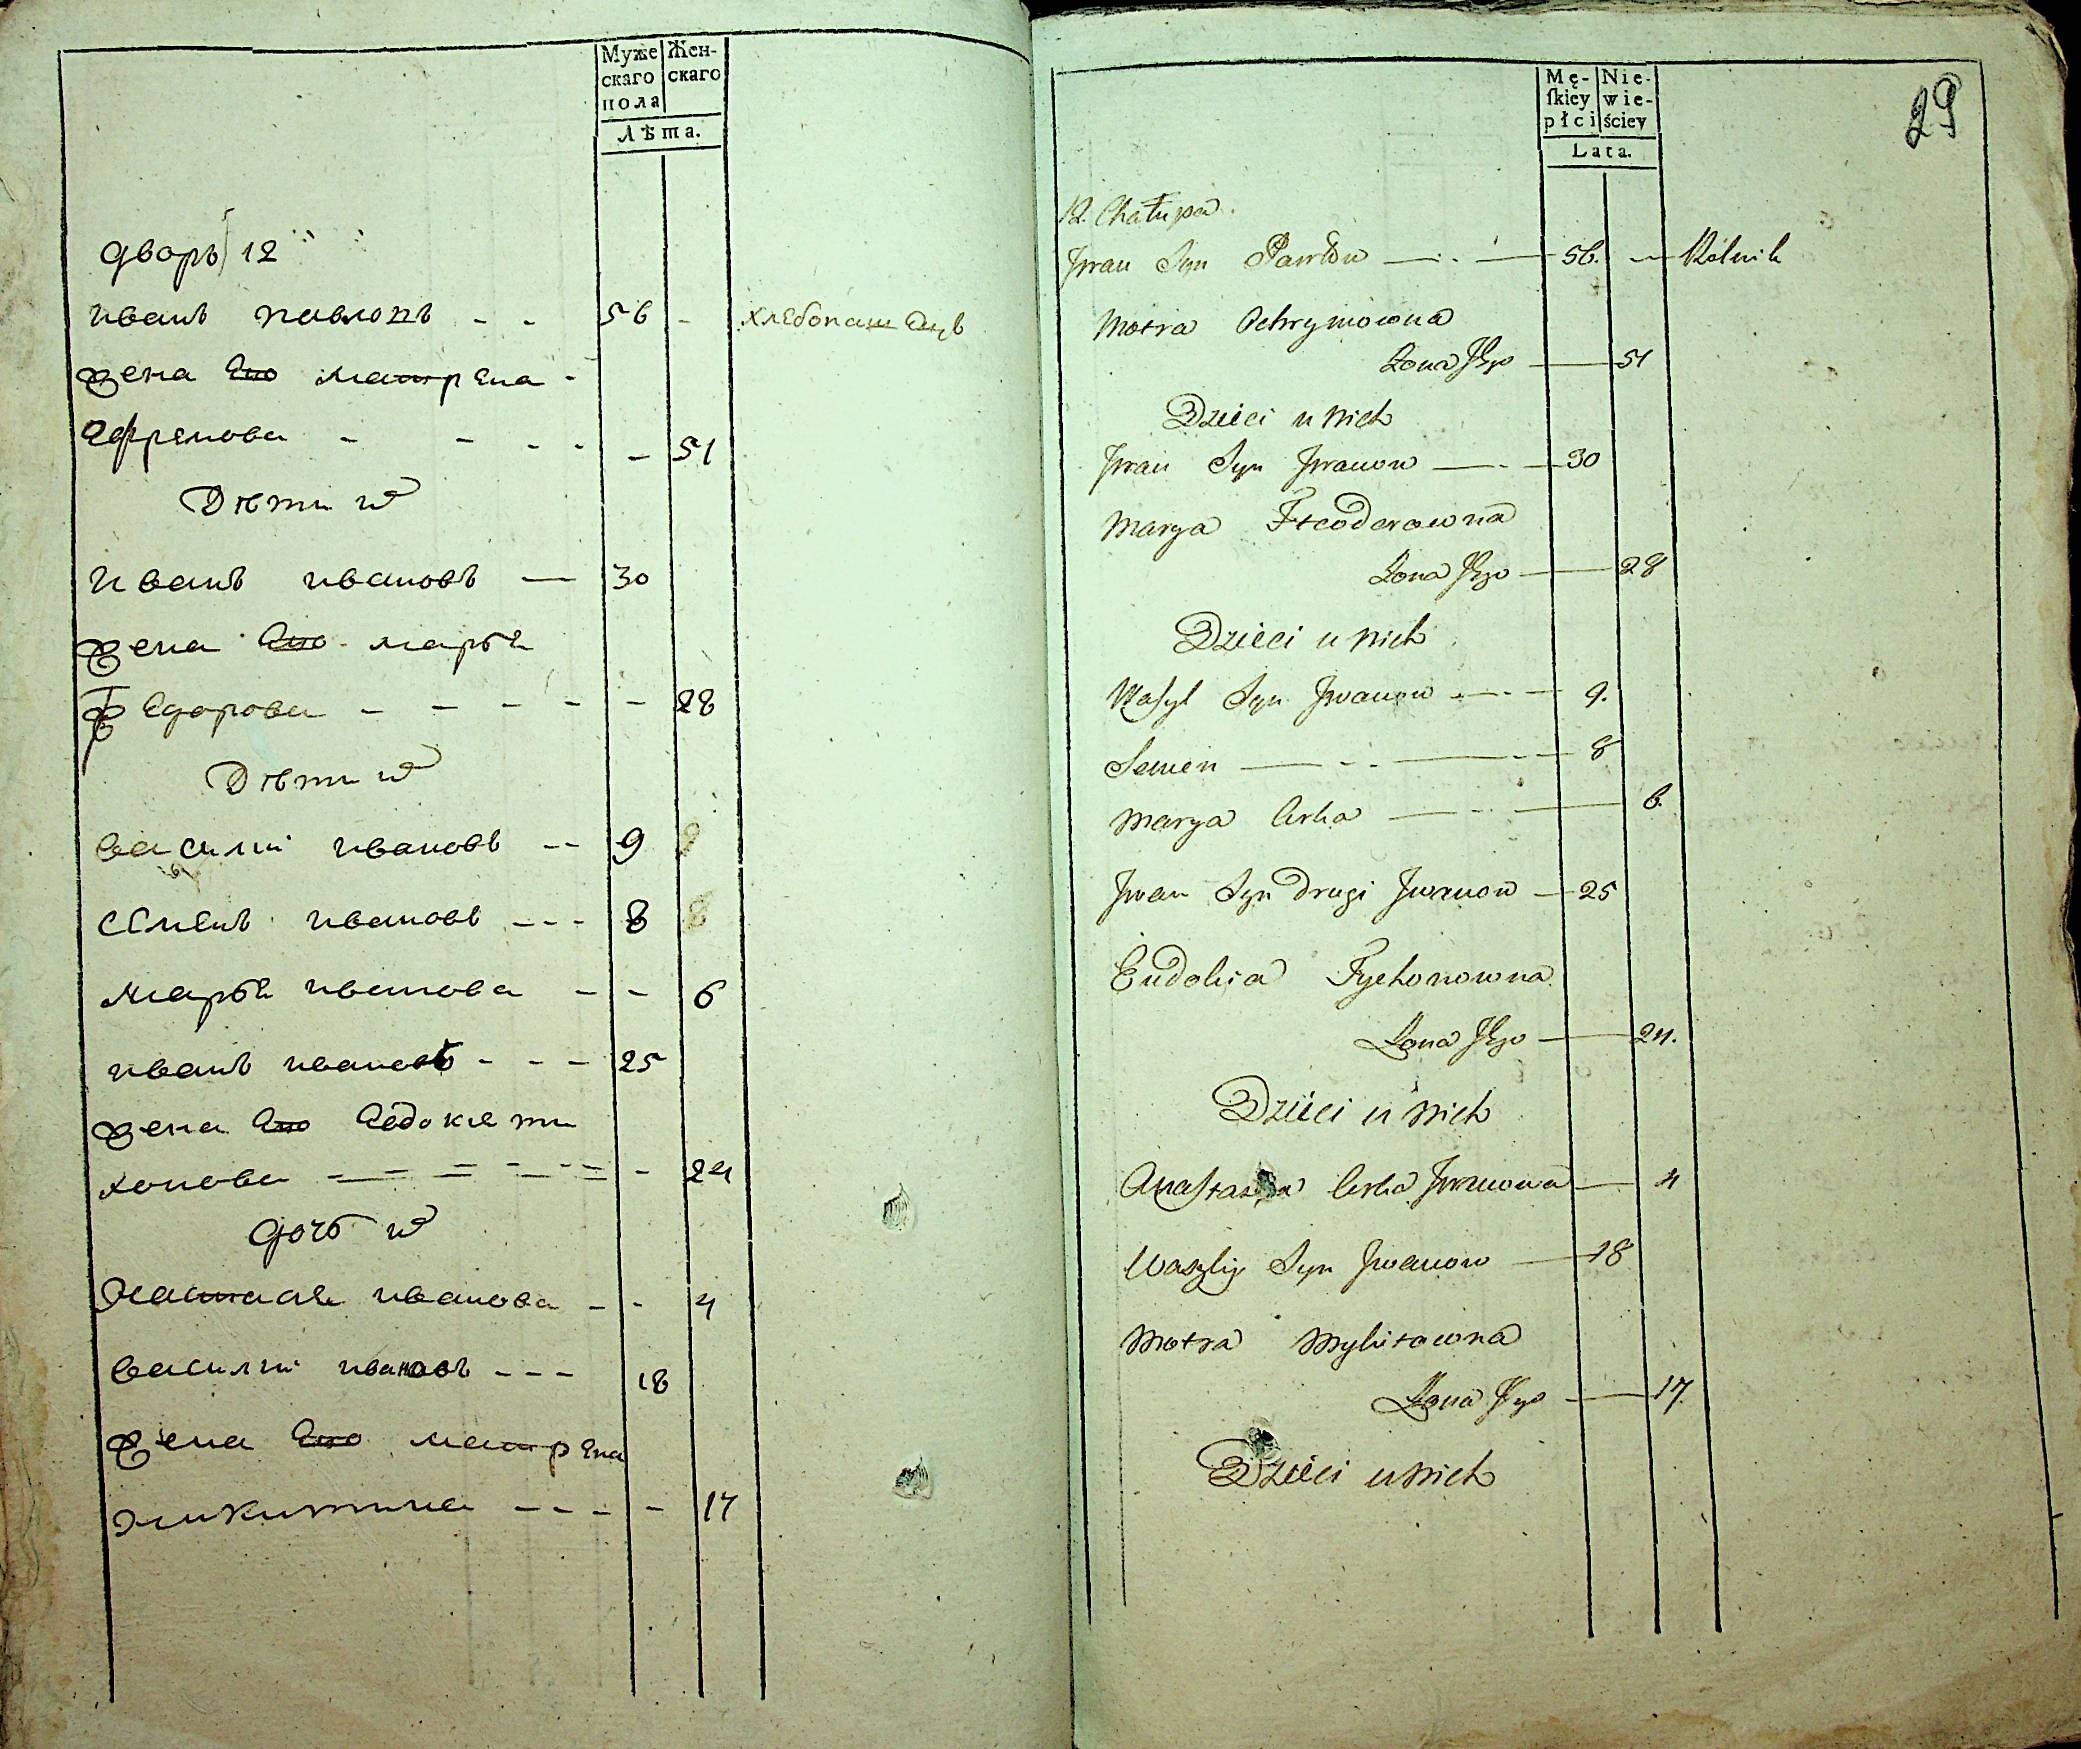 Муже
скаго
пола
Жен-
скаго
Лѣта.
дворъ 12
иванъ павловъ - - 56 - хлебопашецъ
жена ево матрена -
ефремова - - - - - 51
Дѣти их
иванъ ивановъ — 30
жена ево марья
Федорова - - - - - 28
Дѣти их
василии ивановъ -- 9 9
семенъ ивановъ --- 8 8
марья иванова - - 6
иванъ ивановъ - - - 25
жена ево Евдокея ти
хонова - - - - - - - 24
дочь их
настасья иванова - - 4
василии ивановъ --- 18
жена ево матрена
никитина - - - - 17
Mę-
ſkiey
płci
Nie-
wie-
ściey
Lata.
29
12. Chałupa.
Jwan Syn Pawłow — 56. — Rolnik
Motra Ochrymowna
Żona Jego — 51
Dzieci u nich
Jwan Syn Jwanow — 30
Marya Fteodorowna
Żona Jego — 28
Dzieci u nich
Wasyl Syn Jwanow — 9.
Semen — 8
Marya Corka — 6.
Jwan Syn Drugi Jwanow — 25
Eudokia Tychonowna
Żona Jego — 24.
Dzieci u nich
Anastasia Corka Jwanowa — 4
Waszlij Syn Jwanow — 18
Motra Mykitowna
Żona Jego — 17.
Dzieci u nich